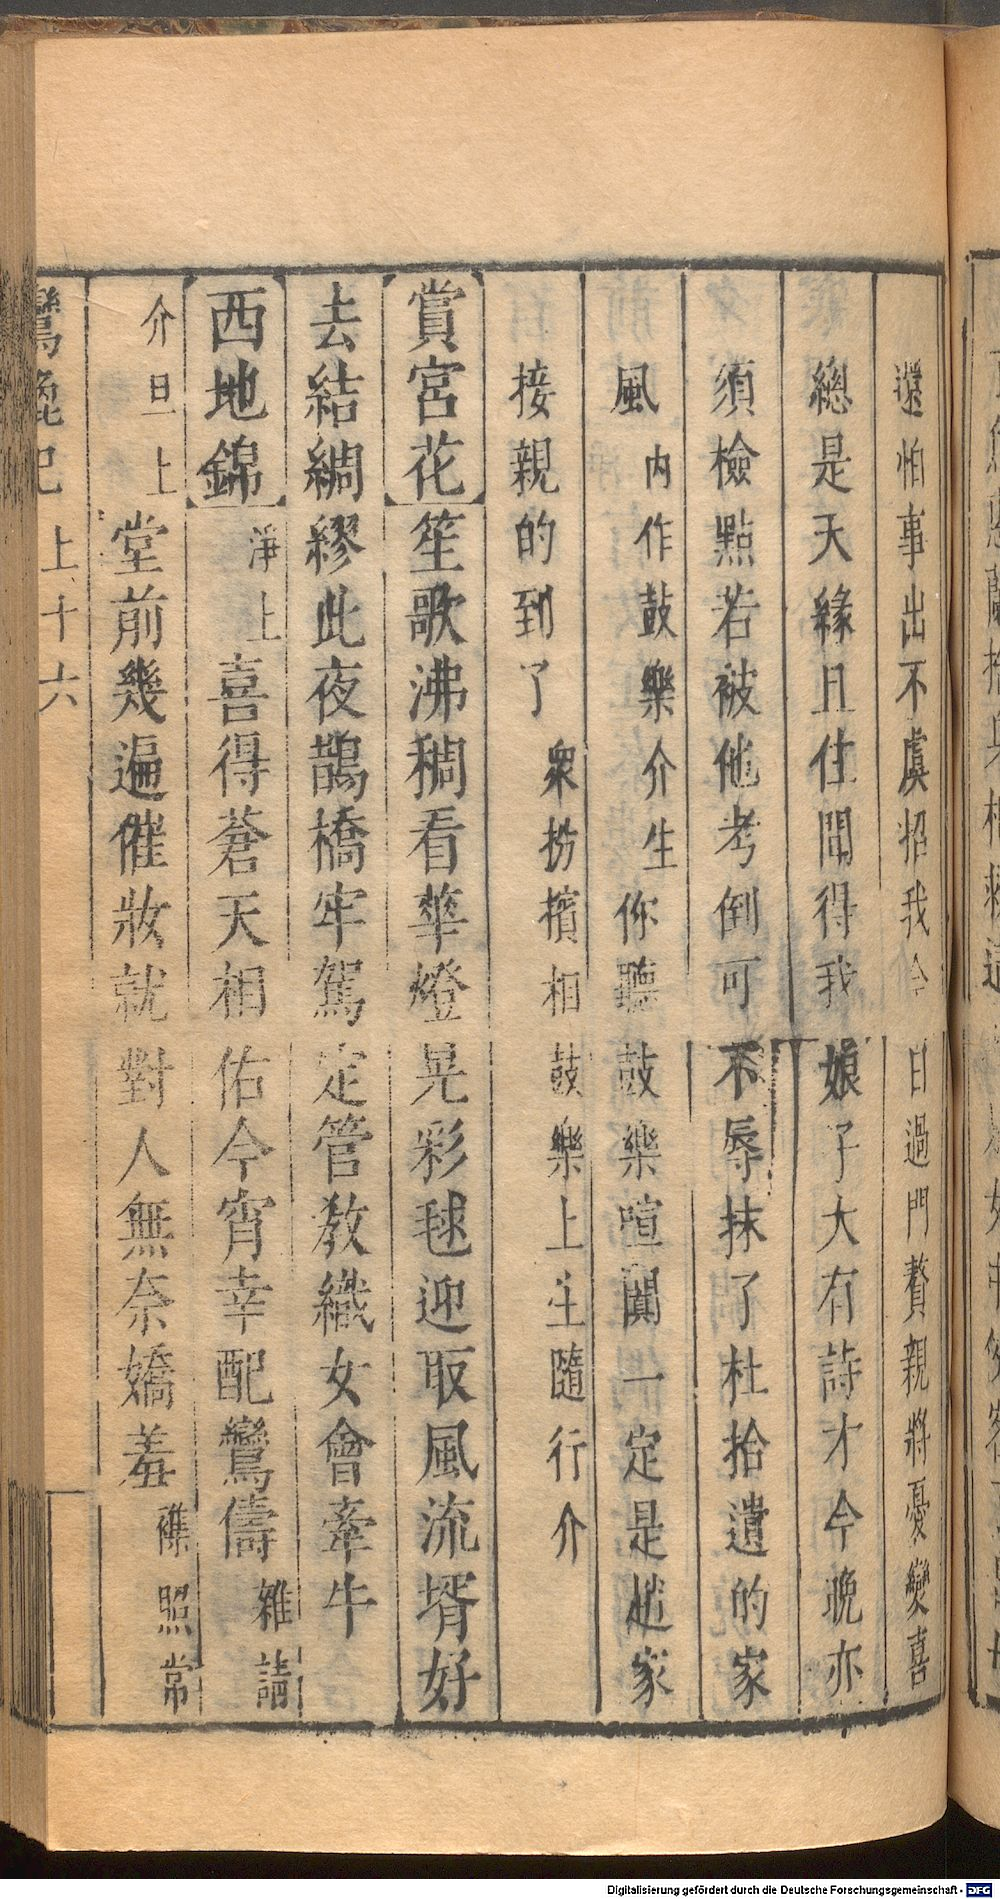 還怕事出不虞招我今日過門贅親將憂變喜
總是天緣且住聞得我娘子大有詩才今晚亦
須檢點若被他考倒可不辱抹了杜拾遺的家
風內作鼓樂介生你聽鼓樂喧闐一定是趙家
接親的到了衆扮擯相鼓樂上生隨行介
賞宮花笙歌沸稠看華燈晃彩毬迎取風流壻好
去結綢繆此夜鵲橋牢駕定管教織女會牽牛
西地錦淨上喜得蒼天相佑今宵幸配鸞儔雜請
介旦上堂前幾遍催妝就對人無奈嬌羞襍照常
鸞 上十六
Digitalisierung gefördert durch die Deutsche Forschungsgemeinschaft - DFG